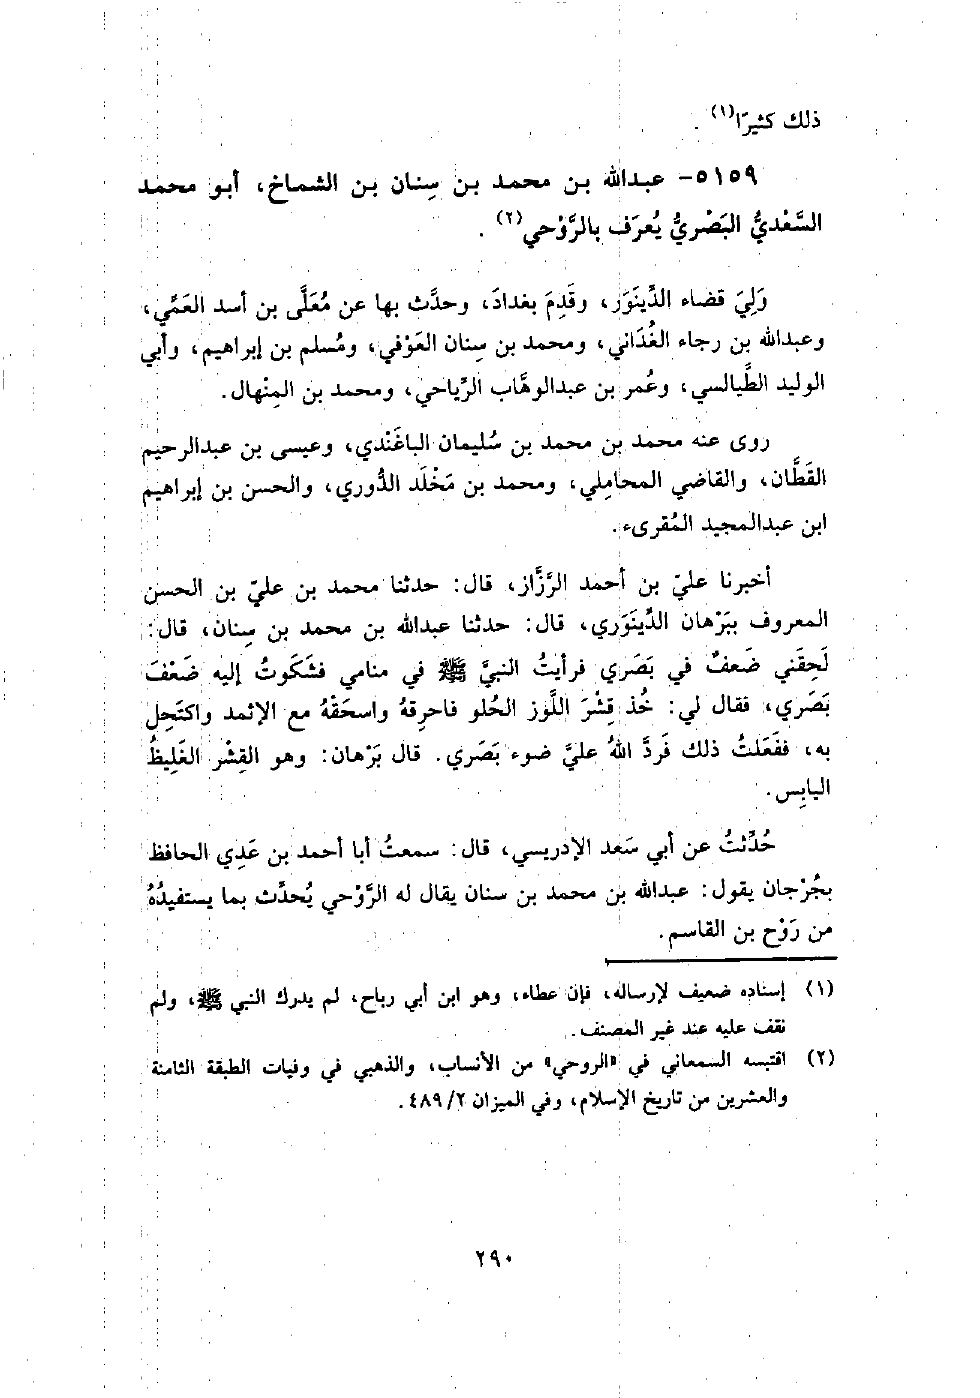 ذلك كثيرًا(١).
٥١٥٩- عبدالله بن محمد بن سِنان بن الشماخ، أبو محمد
السَّعْديُّ البَصْريُّ يُعرَف بالرَّوْحي(٢).
وَلِيَ قضاء الدِّينَوَر، وقَدِمَ بغدادَ، وحدَّث بها عن مُعَلَّى بن أسد العَمِّي،
وعبدالله بن رجاء الغُدَاني، ومحمد بن سِنان العَوْفي، ومُسلم بن إبراهيم، وأبي
الوليد الطَّيالسي، وعُمر بن عبدالوهَّاب الرِّياحي، ومحمد بن المِنْهال.
روى عنه محمد بن محمد بن سُليمان الباغَنْدي، وعيسى بن عبدالرحيم
القَطَّان، والقاضي المحامِلي، ومحمد بن مَخْلَد الدُّوري، والحسن بن إبراهيم
ابن عبدالمجيد المُقرىء.
أخبرنا عليّ بن أحمد الرَّزَّاز، قال: حدثنا محمد بن عليّ بن الحسن
المعروف ببَرْهان الدِّينَوَري، قال: حدثنا عبدالله بن محمد بن سِنان، قال:
لَحِقَني ضَعفٌ في بَصَري فرأيتُ النبيَّ ﷺ في منامي فشَكَوتُ إليه ضَعْفَ
بَصَري، فقال لي: خُذ قِشْرَ اللَّوز الحُلو فاحرِقهُ واسحَقْهُ مع الإثمد واكتَحِل
به، ففَعَلتُ ذلك فَردَّ اللهُ عليَّ ضوء بَصَري. قال بَرْهان: وهو القِشْر الغَلِيظُ
اليابِس.
حُدِّثتُ عن أبي سَعد الإدريسي، قال: سمعتُ أبا أحمد بن عَدِي الحافظ
بجُرْجان يقول: عبدالله بن محمد بن سنان يقال له الرَّوْحي يُحدِّث بما يستفيدُهُ
من رَوْح بن القاسم.
(١) إسناده ضعيف لإرساله، فإن عطاء، وهو ابن أبي رباح، لم يدرك النبي ﷺ، ولم
نقف عليه عند غير المصنف.
(٢) اقتبسه السمعاني في «الروحي» من الأنساب، والذهبي في وفيات الطبقة الثامنة
والعشرين من تاريخ الإسلام، وفي الميزان ٤٨٩/٢.
٢٩٠